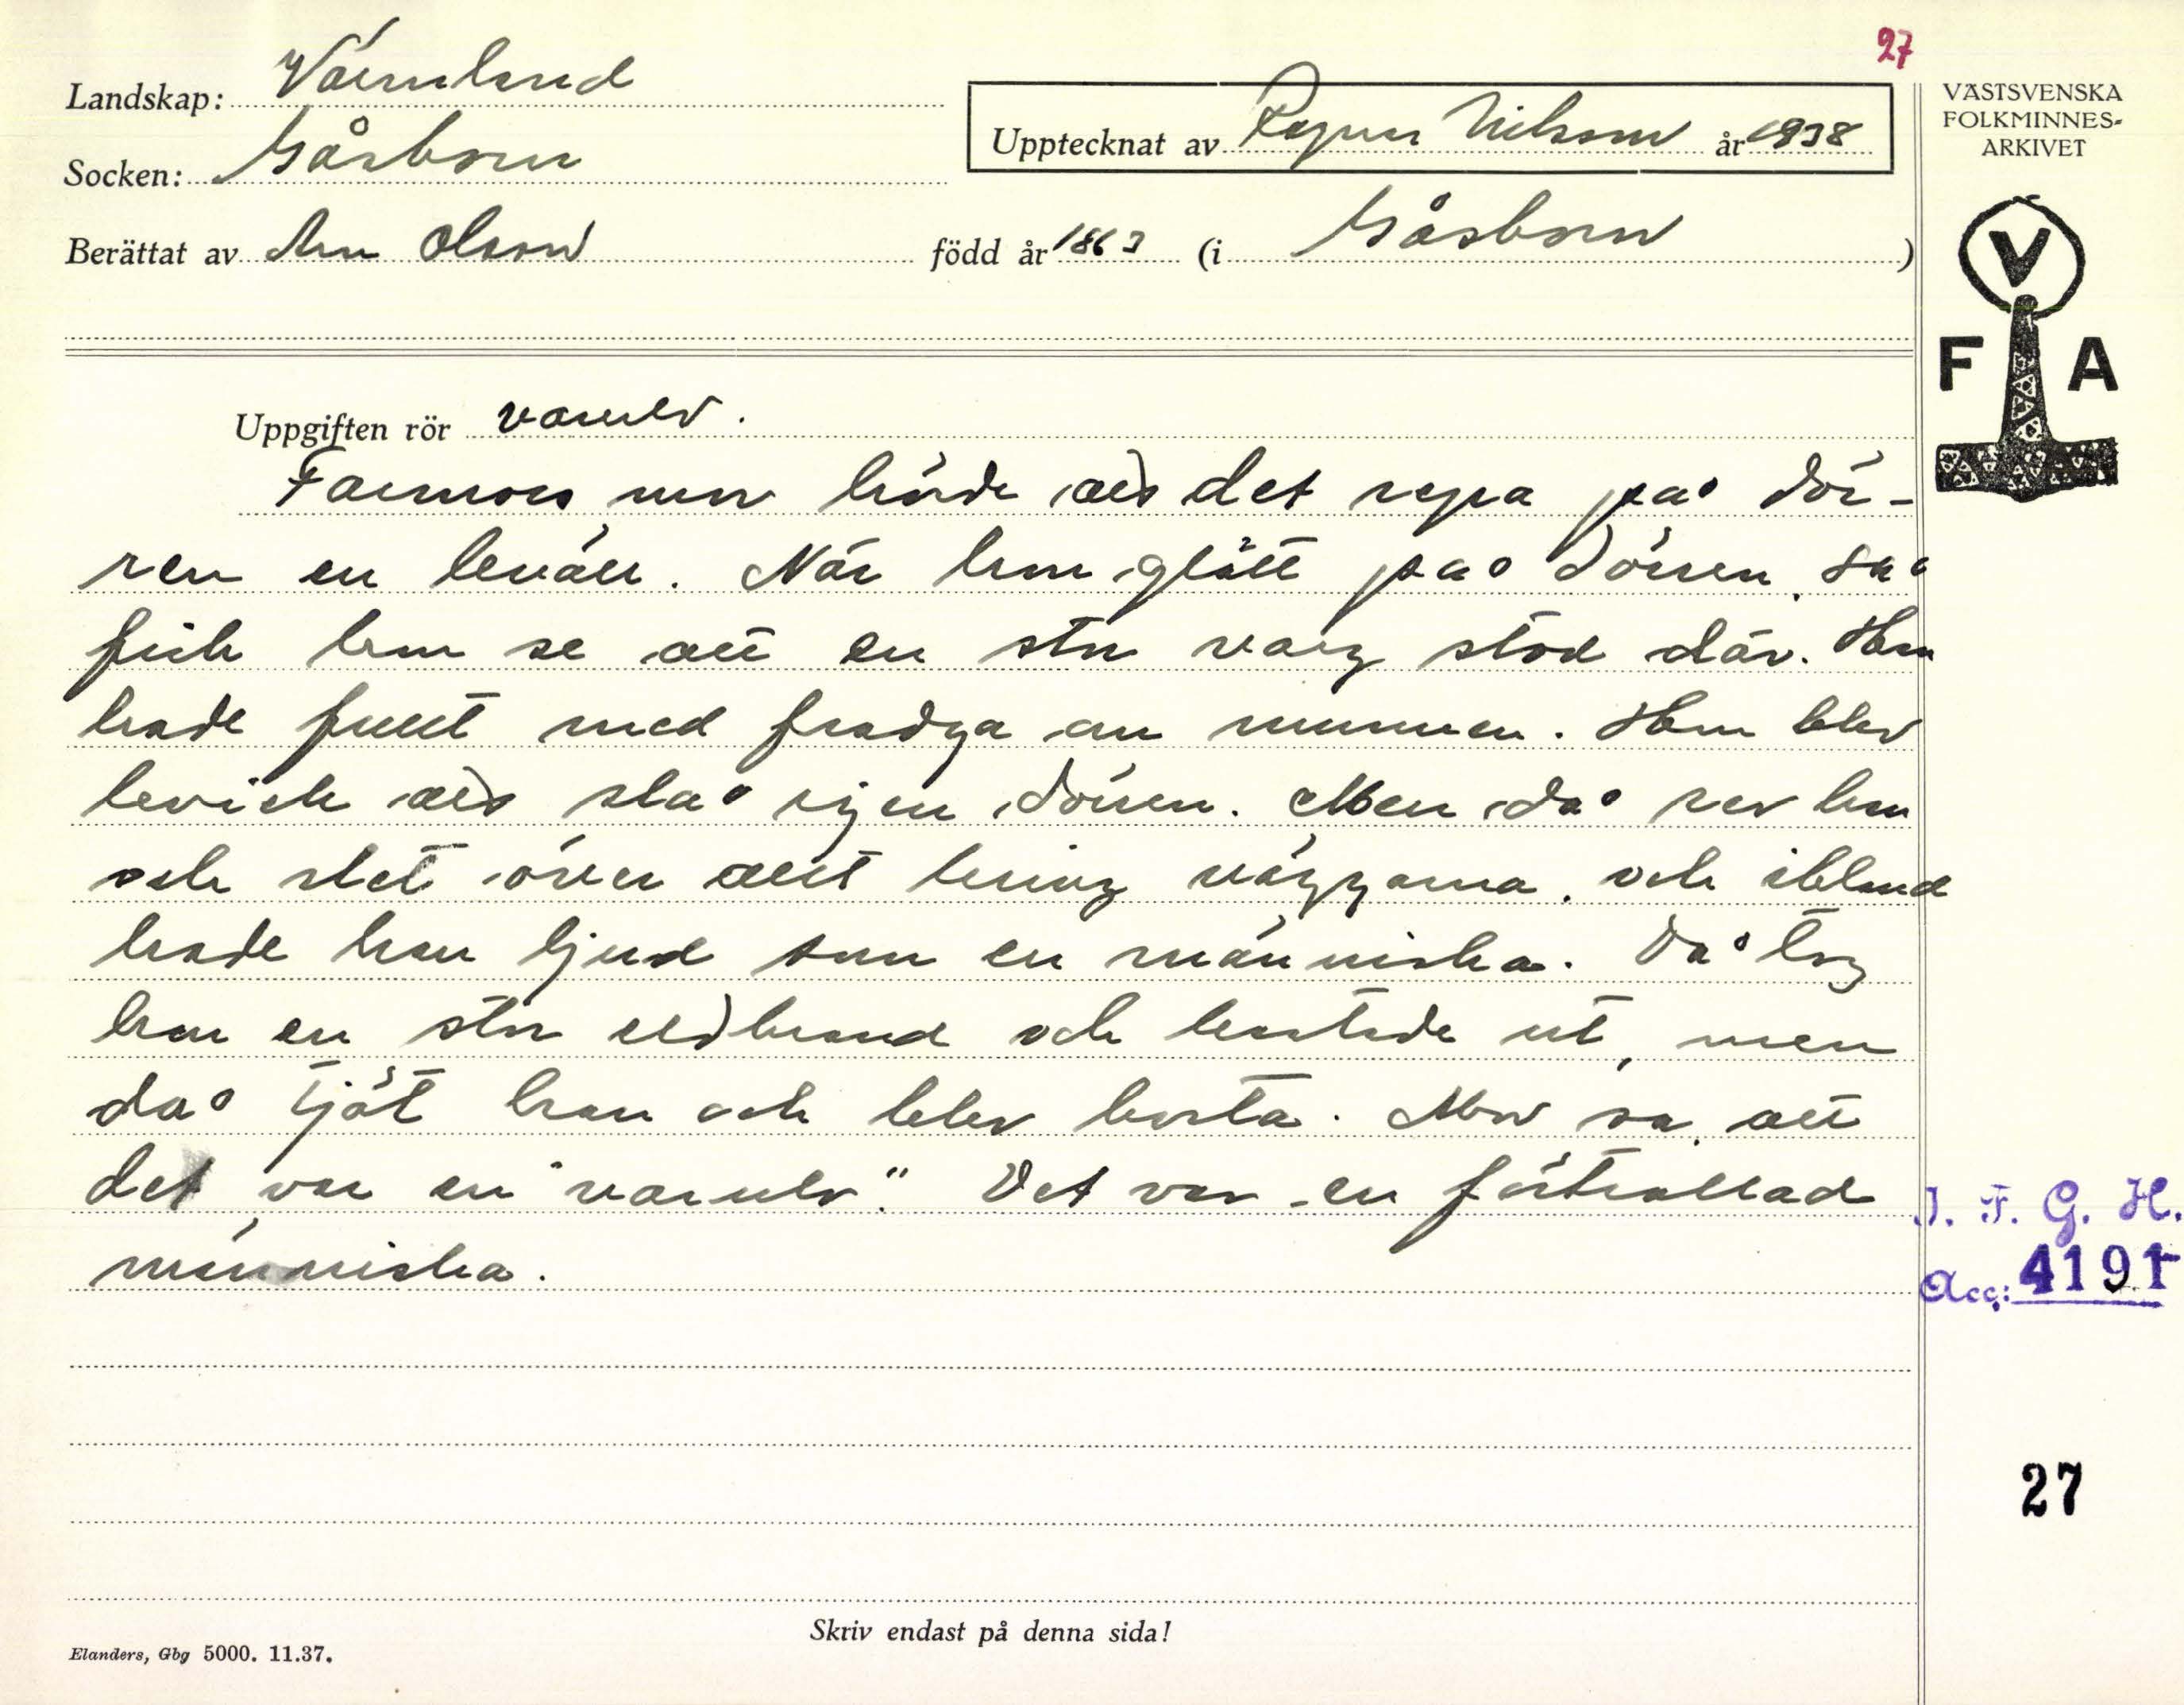 27
Landskap: Värmland
Socken: Gåsborn
Upptecknat av Ragnar Nilsson år 1938
Berättat av Olsson född år 1863 (i Gåsborn)
VÄSTSVENSKA
FOLKMINNES-
ARKIVET
V
F A
Uppgiften rör varulv.
Farmors mor hörde att det repa på dör-
ren en kväll. När hon glätt på dörren, så
fick hon se att en stor varg stod där. Han
hade fullt med fradga om munnen. Hon blev
kvick att slå igen dörren. Men då rev han
och slet över allt kring väggarna, och ibland
hade han ljud som en människa. Då tog
hon en stor eldbrand och kastade ut, men
då tjöt han och blev borta. Mor sa, att
det var en "varulv". Det var en förtrollad
människa.
I. F. G. H.
Acc: 4191
27
Skriv endast på denna sida!
Elanders, Gbg 5000. 11.37.